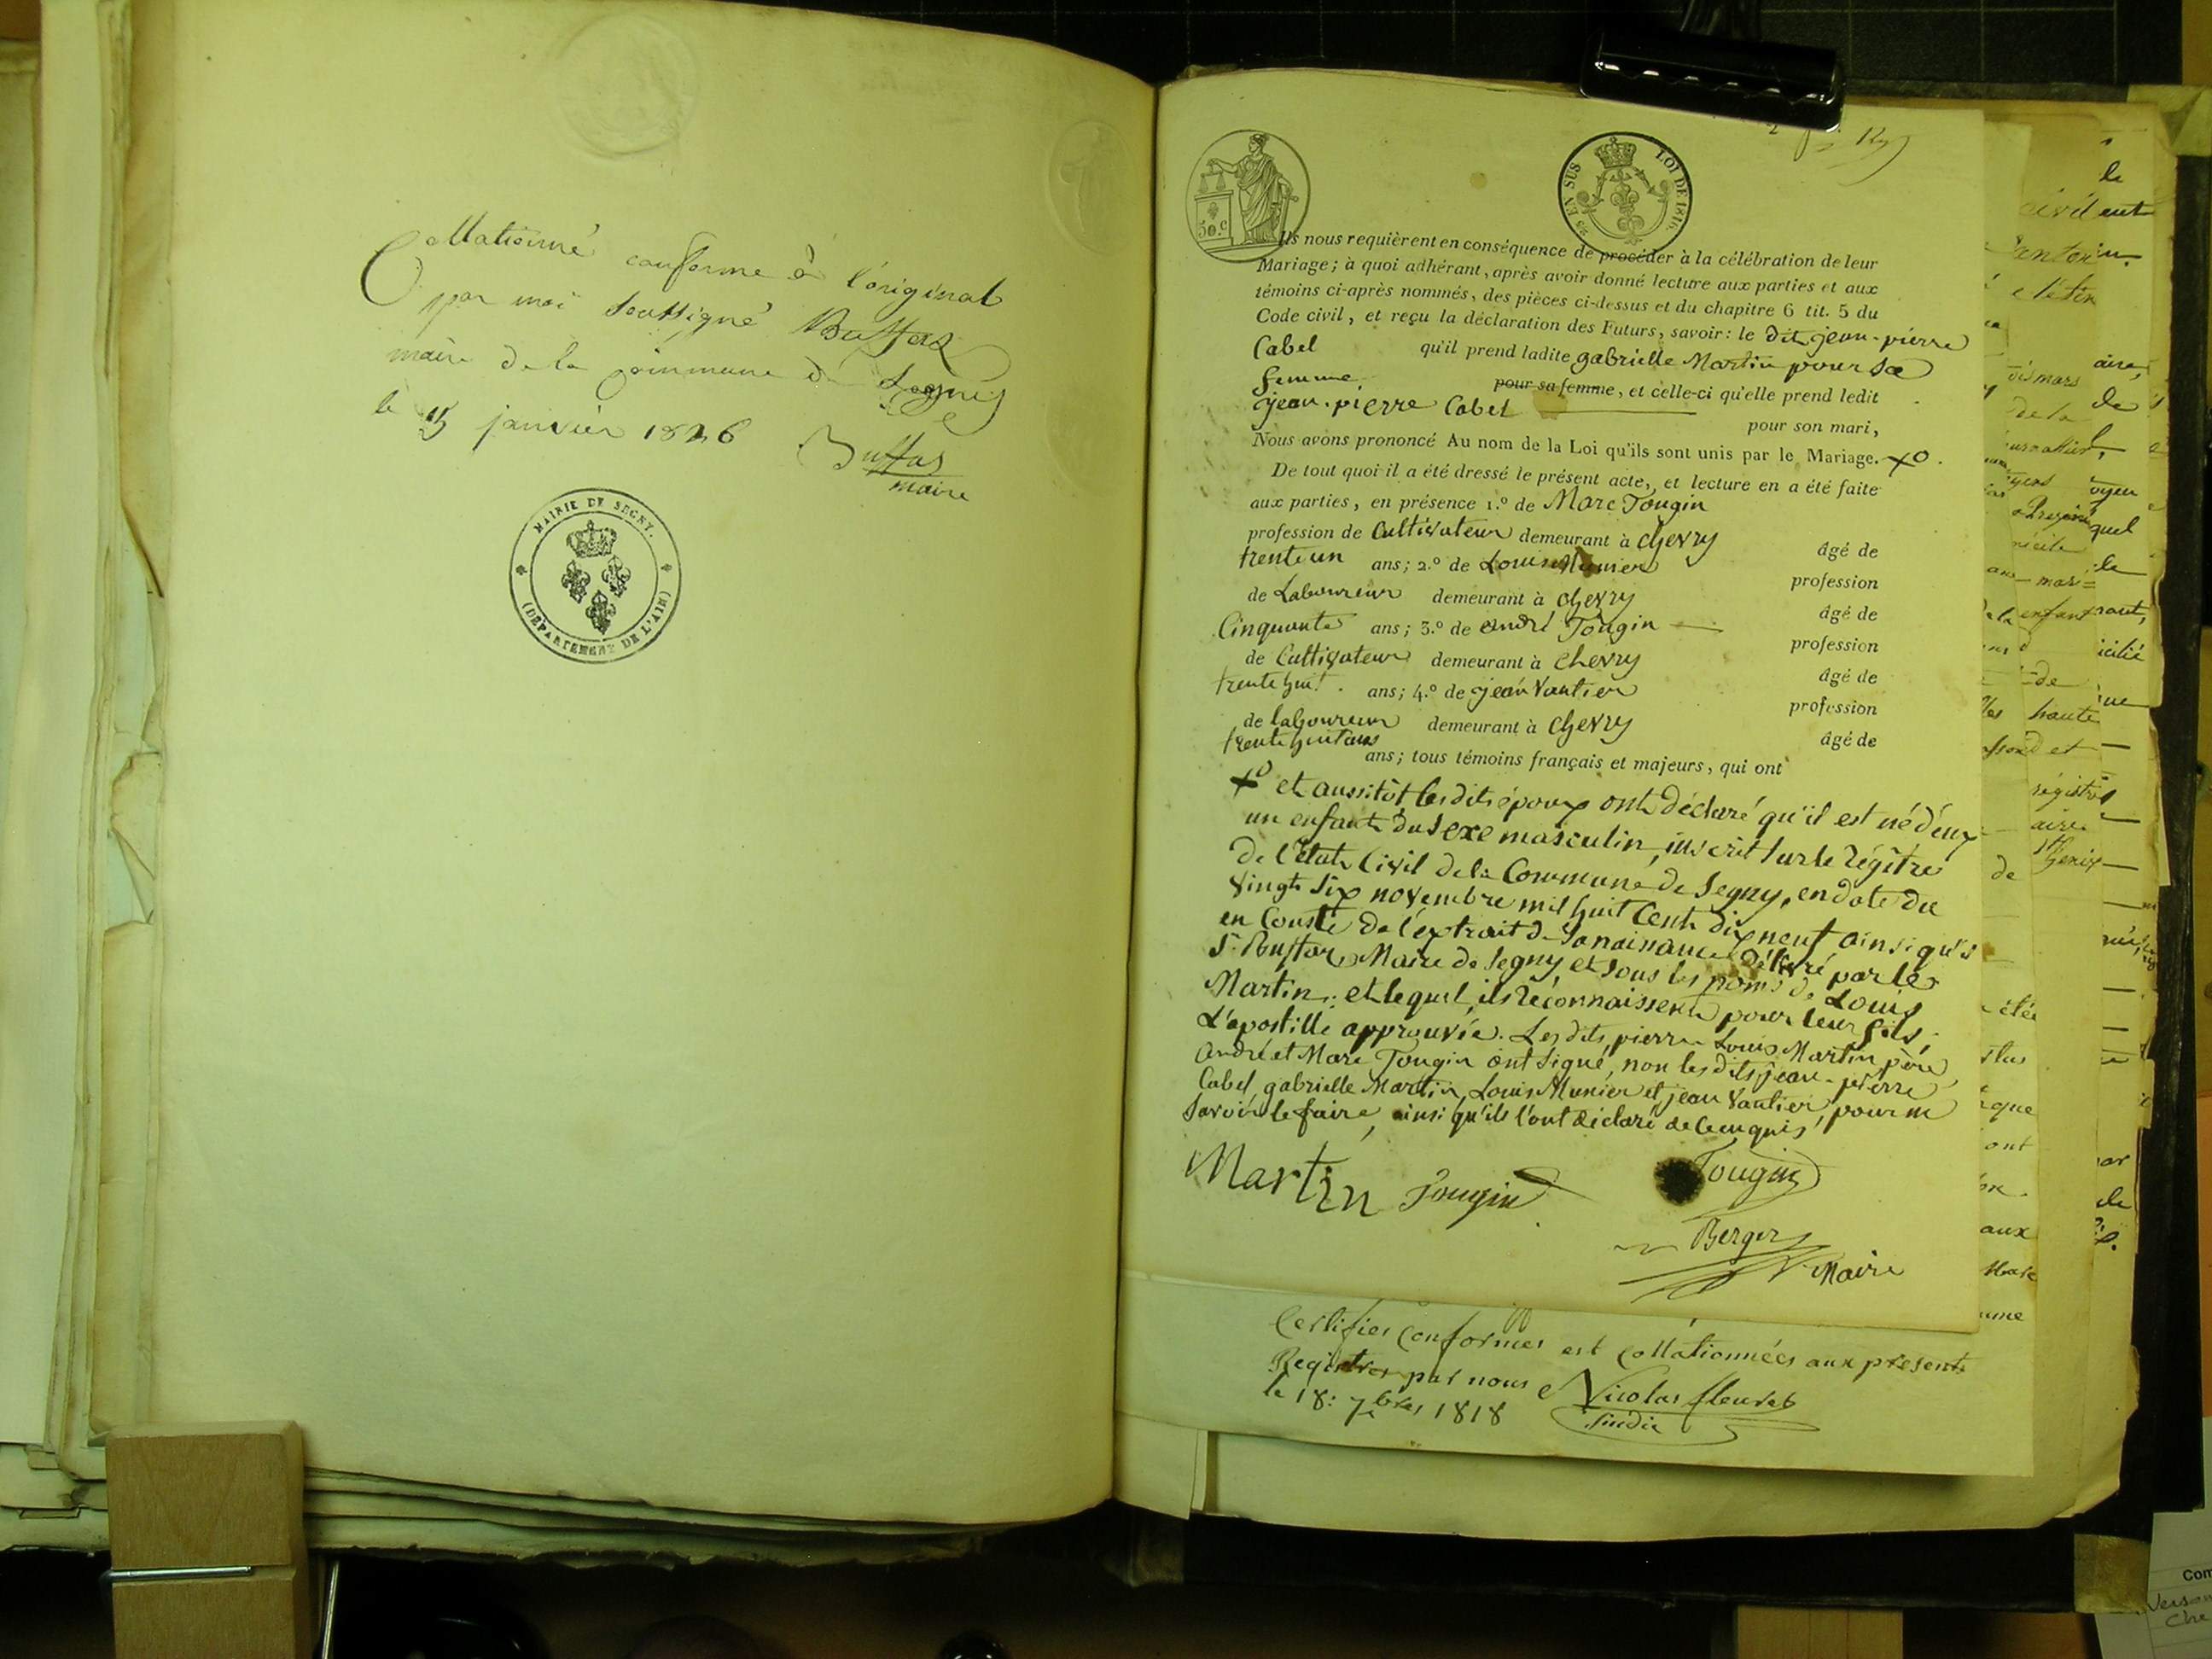 Collationné conforme à l'original
par moi soussigné Buffaz
maire de la commune de Segny
le 15 janvier 1826
Buffaz
maire
MAIRIE DE SEGNY.
(DÉPARTEMENT DE L'AIN)
50.c
25 EN SUS
LOI DE 1816
Ils nous requièrent en conséquence de procéder à la célébration de leur
Mariage; à quoi adhérant, après avoir donné lecture aux parties et aux
témoins ci-après nommés, des pièces ci-dessus et du chapitre 6 tit. 5 du
Code civil, et reçu la déclaration des Futurs, savoir: le dit jean-pierre
Cabel qu'il prend ladite gabrielle Martin pour sa
femme, pour sa femme, et celle-ci qu'elle prend ledit
jean-pierre Cabel
pour son mari,
Nous avons prononcé Au nom de la Loi qu'ils sont unis par le Mariage. +o.
De tout quoi il a été dressé le présent acte, et lecture en a été faite
aux parties, en présence 1.º de Marc Tougin
profession de Cultivateur demeurant à chevry âgé de
trente un ans; 2.º de Louis Munier profession
de Laboureur demeurant à chevry âgé de
Cinquante ans; 3.º de André Tougin profession
de Cultivateur demeurant à chevry âgé de
trente huit ans; 4.º de jean Vautier profession
de laboureur demeurant à chevry âgé de
trente huit ans ans; tous témoins français et majeurs, qui ont
+o et aussitôt les dits époux ont déclaré qu'il est né d'eux
un enfant du sexe masculin, inscrit sur le régitre
de l'état Civil de la Commune de Segny, en date du
vingt six novembre mil huit Cent dix neuf ainsi qu'il
en Conste de l'extrait de sa naissance délivré par le
Sr. Buffaz Maire de Segny et sous les noms de Louis
Martin; et lequel, ils reconnaissent pour leur fils;
L'apostille approuvée. Les dits, pierre Louis Martin père
André et Marc Tougin ont signé, non les dits jean-pierre
Cabel, gabrielle Martin, Louis Munier et jean Vautier, pour ne
savoir le faire, ainsi qu'ils l'ont déclaré de ce enquis,
Martin Tougin Tougin
Berger
Maire
Certifiés conformes est collationnées aux présents
Registres par nous Nicolas fleuret
le 18: 7bres 1818 Sindic